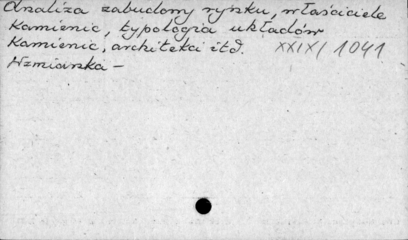 Analiza zabudowy rynku, właściciele
Kamienic, typologia układów
Kamienic, architekci itd. XXIX/1041
Wzmianka –